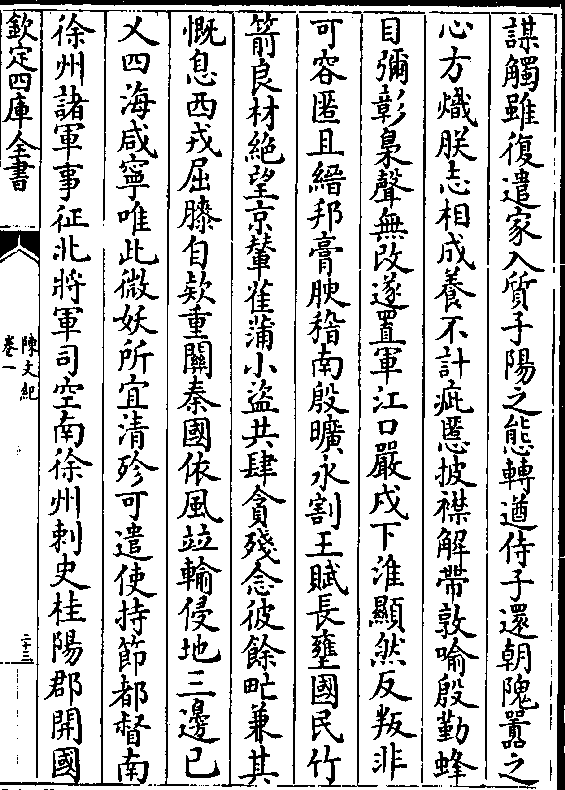 謀觸雖復遣家入質子陽之態轉遒侍子還朝隗囂之
心方熾朕志相成養不計疵慝披襟解帶敦喻殷勤蜂
目彌彰梟聲無改遂置軍江口嚴戍下淮顯然反叛非
可容匿且縉邦膏腴稽南殷曠永割王賦長壅國民竹
箭良材絶望京輦萑蒲小盜共肆貪殘念彼餘甿兼其
慨息西戎屈膝自欵重關秦國依風竝輸侵地三邊已
乂四海咸寧唯此微妖所宜清殄可遣使持節都督南
徐州諸軍事征北將軍司空南徐州刺史桂陽郡開國
欽定四庫全書
陳文紀
卷一
二十三